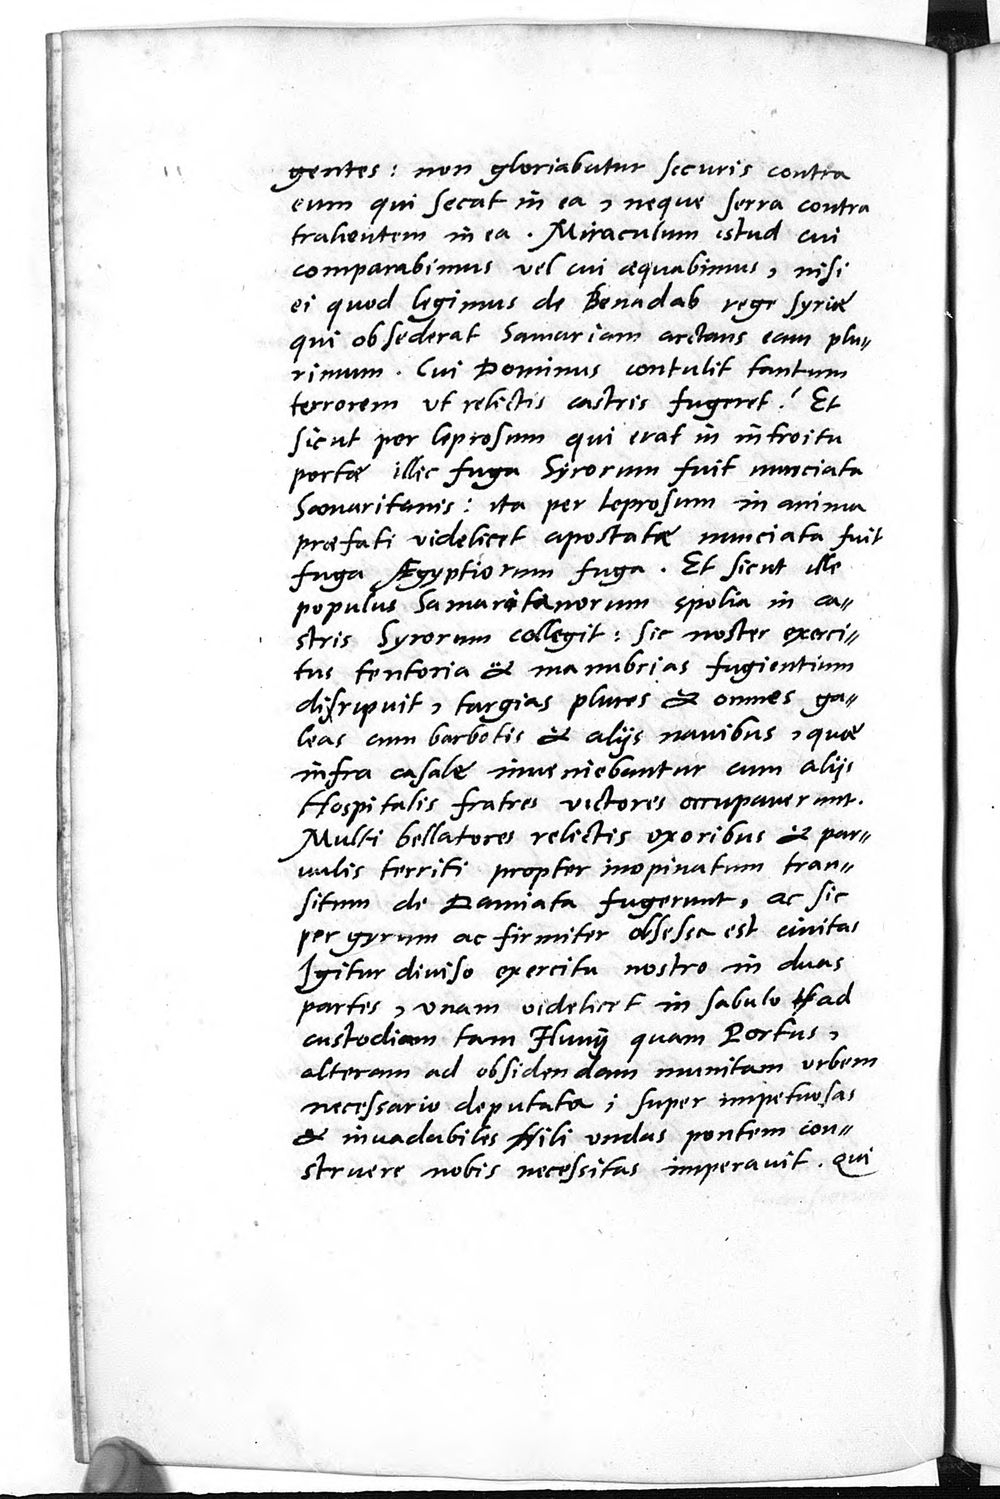 gentes: non gloriabutur securis contra
eum qui secat in ea, neque serra contra
trahentem in ea. Miraculum istud cui
comparabimus vel cui æquabimus, nisi
ei quod legimus de Benadab rege Syriæ
qui obsederat Samariam arctans eam plu„
rimum. Cui Dominus contulit tantum
terrorem ut relictis castris fugeret! Et
sicut per leprosum qui erat in introitu
portæ illic fuga Syrorum fuit nunciata
Samaritanis: ita per leprosum in anima
præfati videlicet apostatæ nunciata fuit
fuga Ægyptiorum fuga. Et sicut ille
populus Samaritanorum spolia in ca„
stris Syrorum collegit: sic noster exerci„
tus tentoria & manubrias fugientium
disripuit, targias plures & omnes ga„
leas cum barbotis & alijs navibus, quæ
infra casale inveniebantur cum alijs
Hospitalis fratres victores occupaverunt.
Multi bellatores relictis uxoribus & par„
uulis territi propter inopinatum tran„
situm de Damiata fugerunt, ac sic
per gyrum ac firmiter obsessa est ciuitas
Igitur diuiso exercitu nostro in duas
partes, unam videlicet in sabulo ad
custodiam tam Fluuij quam Portus,
alteram ad obsidendam munitam urbem
necessario deputata; super impetuosas
& inuadabiles Nili undas pontem con„
struere nobis necessitas imperavit. Qui